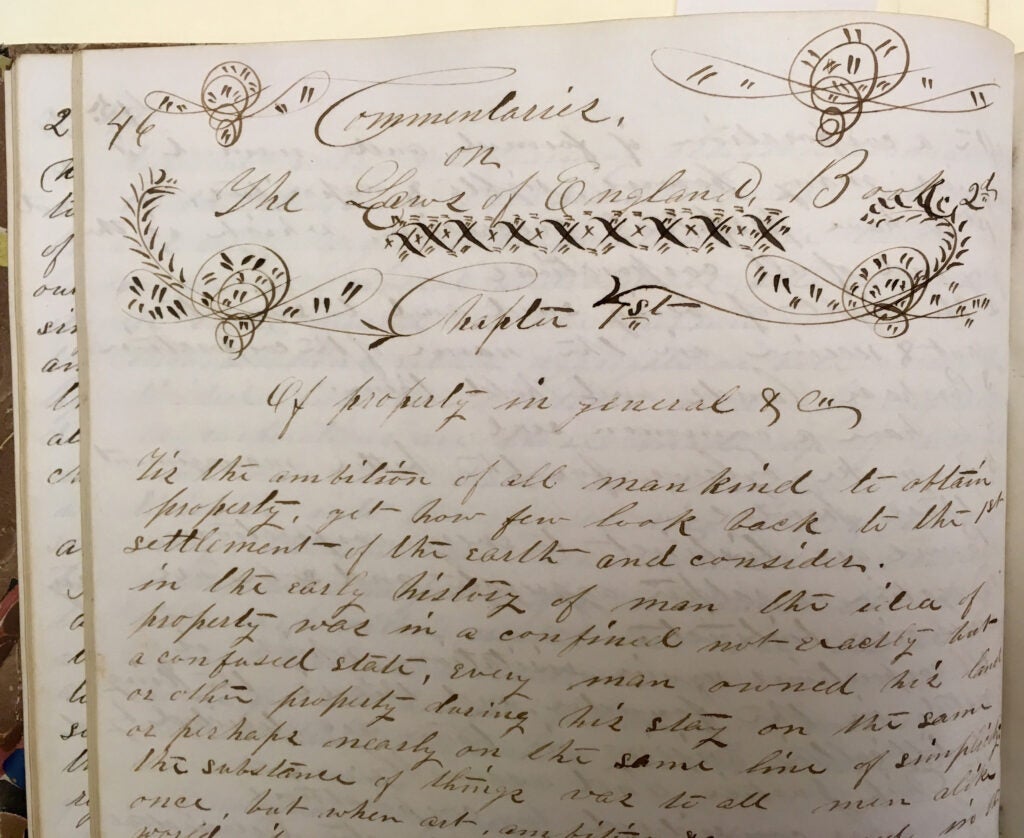 46
Commentaries,
on
The Laws of England, Book 2d
Chapter 1st
Of property in general & C
Tis the ambition of all mankind to obtain
property, yet how few look back to the 1st
settlement of the earth and consider.
in the early history of man the idea of
property was in a confined not exactly but
a confused state, every man owned his land
or other property during his stay on the same
or perhaps nearly on the same line of simplicity
the substance of things was to all men alike
once, but when art,
world